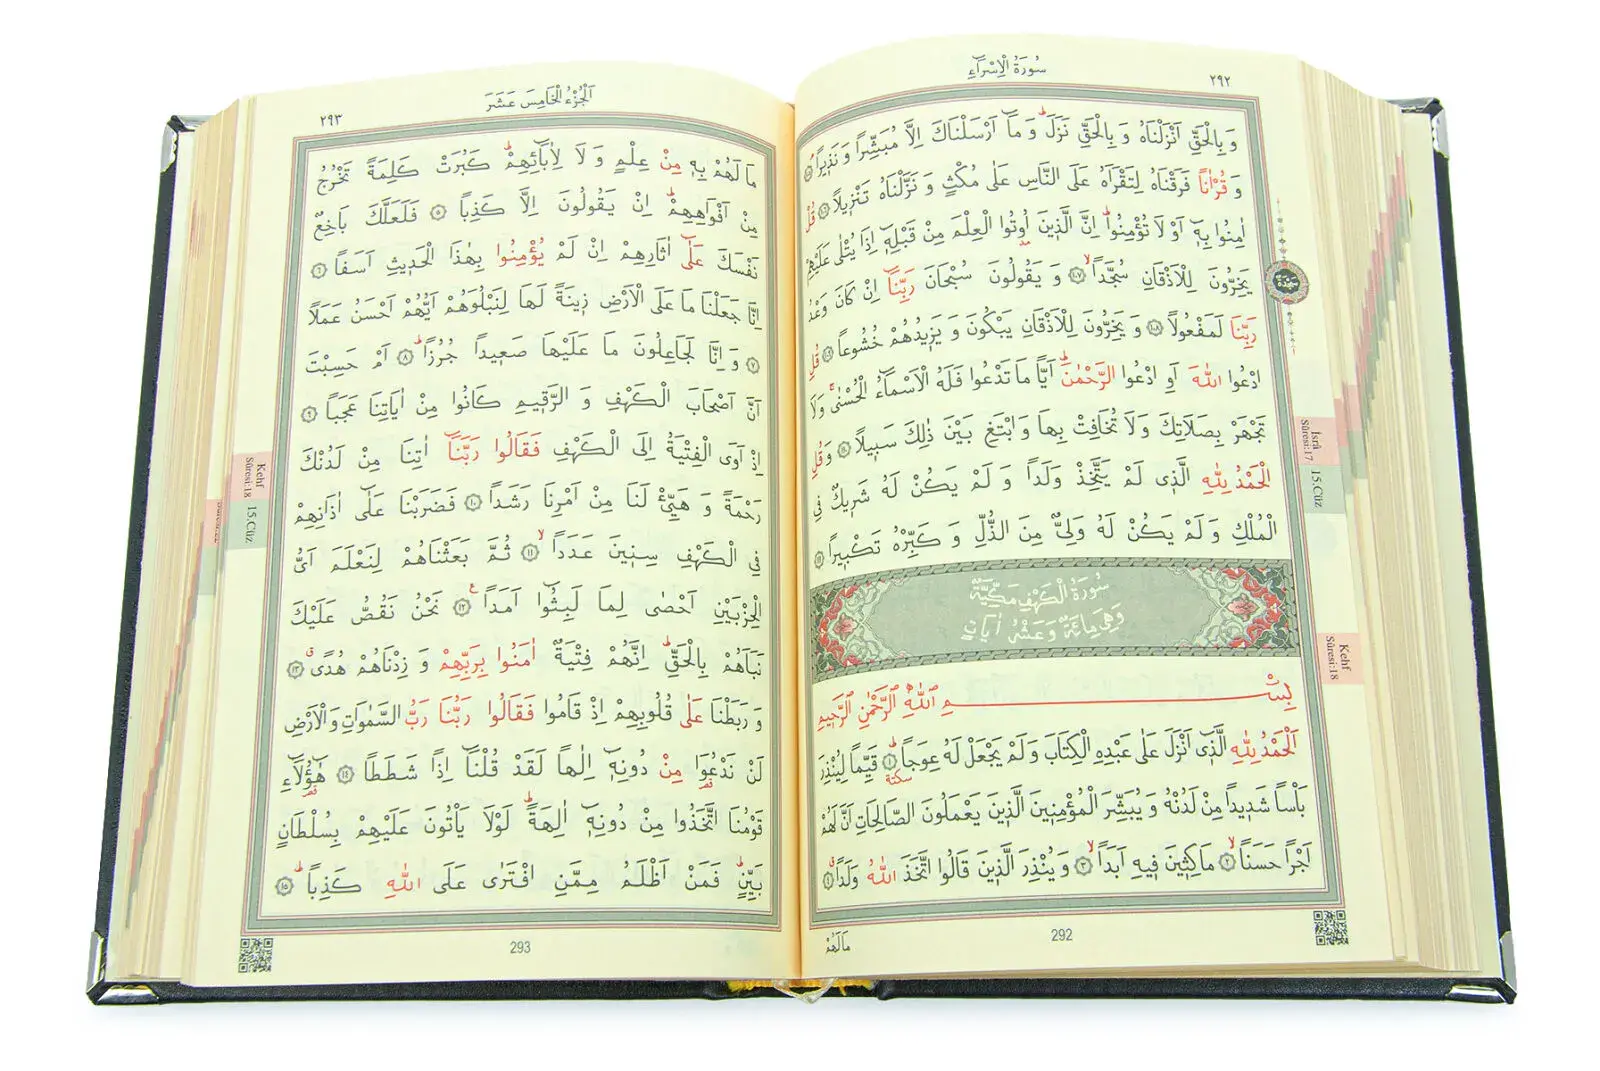 سُورَةُ الْاِسْرَٓاءِ
٢٩٢
وَبِالْحَقِّ اَنْزَلْنَاهُ وَبِالْحَقِّ نَزَلَۜ وَمَٓا اَرْسَلْنَاكَ اِلَّا مُبَشِّرًا وَنَذ۪يرًاۢ ﴿١٠٥﴾
وَقُرْاٰنًا فَرَقْنَاهُ لِتَقْرَاَهُ عَلَى النَّاسِ عَلٰى مُكْثٍ وَنَزَّلْنَاهُ تَنْز۪يلًا ﴿١٠٦﴾ قُلْ
اٰمِنُوا بِه۪ٓ اَوْ لَا تُؤْمِنُواۜ اِنَّ الَّذ۪ينَ اُو۫تُوا الْعِلْمَ مِنْ قَبْلِه۪ٓ اِذَا يُتْلٰى عَلَيْهِمْ
يَخِرُّونَ لِلْاَذْقَانِ سُجَّدًاۙ ﴿١٠٧﴾ وَيَقُولُونَ سُبْحَانَ رَبِّنَٓا اِنْ كَانَ وَعْدُ
سجدة
رَبِّنَا لَمَفْعُولًا ﴿١٠٨﴾ وَيَخِرُّونَ لِلْاَذْقَانِ يَبْكُونَ وَيَز۪يدُهُمْ خُشُوعًا ﴿١٠٩﴾ قُلِ
ادْعُوا اللّٰهَ اَوِ ادْعُوا الرَّحْمٰنَۜ اَيًّا مَا تَدْعُوا فَلَهُ الْاَسْمَٓاءُ الْحُسْنٰىۚ وَلَا
تَجْهَرْ بِصَلَاتِكَ وَلَا تُخَافِتْ بِهَا وَابْتَغِ بَيْنَ ذٰلِكَ سَب۪يلًا ﴿١١٠﴾ وَقُلِ
الْحَمْدُ لِلّٰهِ الَّذ۪ي لَمْ يَتَّخِذْ وَلَدًا وَلَمْ يَكُنْ لَهُ شَر۪يكٌ فِي
الْمُلْكِ وَلَمْ يَكُنْ لَهُ وَلِيٌّ مِنَ الذُّلِّ وَكَبِّرْهُ تَكْب۪يرًا ﴿١١١﴾
سُورَةُ الْكَهْفِ مَكِّيَّةٌ
وَهِيَ مِائَةٌ وَعَشْرُ اٰيَاتٍ
بِسْمِ اللّٰهِ الرَّحْمٰنِ الرَّح۪يمِ
اَلْحَمْدُ لِلّٰهِ الَّذ۪ٓي اَنْزَلَ عَلٰى عَبْدِهِ الْكِتَابَ وَلَمْ يَجْعَلْ لَهُ عِوَجًاۜ ﴿١﴾ قَيِّمًا لِيُنْذِرَ
سكتة
بَاْسًا شَد۪يدًا مِنْ لَدُنْهُ وَيُبَشِّرَ الْمُؤْمِن۪ينَ الَّذ۪ينَ يَعْمَلُونَ الصَّالِحَاتِ اَنَّ لَهُمْ
اَجْرًا حَسَنًاۙ ﴿٢﴾ مَاكِث۪ينَ ف۪يهِ اَبَدًاۙ ﴿٣﴾ وَيُنْذِرَ الَّذ۪ينَ قَالُوا اتَّخَذَ اللّٰهُ وَلَدًاۗ ﴿٤﴾
مَا لَهُمْ
292
İsrâ
Sûresi:17
15.Cüz
Kehf
Sûresi:18
اَلْجُزْءُ الْخَامِسَ عَشَرَ
٢٩٣
مَا لَهُمْ بِه۪ مِنْ عِلْمٍ وَلَا لِاٰبَٓائِهِمْۜ كَبُرَتْ كَلِمَةً تَخْرُجُ
مِنْ اَفْوَاهِهِمْۜ اِنْ يَقُولُونَ اِلَّا كَذِبًا ﴿٥﴾ فَلَعَلَّكَ بَاخِعٌ
نَفْسَكَ عَلٰٓى اٰثَارِهِمْ اِنْ لَمْ يُؤْمِنُوا بِهٰذَا الْحَد۪يثِ اَسَفًا ﴿٦﴾
اِنَّا جَعَلْنَا مَا عَلَى الْاَرْضِ ز۪ينَةً لَهَا لِنَبْلُوَهُمْ اَيُّهُمْ اَحْسَنُ عَمَلًا
﴿٧﴾ وَاِنَّا لَجَاعِلُونَ مَا عَلَيْهَا صَع۪يدًا جُرُزًاۜ ﴿٨﴾ اَمْ حَسِبْتَ
اَنَّ اَصْحَابَ الْكَهْفِ وَالرَّق۪يمِ كَانُوا مِنْ اٰيَاتِنَا عَجَبًا ﴿٩﴾
اِذْ اَوَى الْفِتْيَةُ اِلَى الْكَهْفِ فَقَالُوا رَبَّنَٓا اٰتِنَا مِنْ لَدُنْكَ
رَحْمَةً وَهَيِّئْ لَنَا مِنْ اَمْرِنَا رَشَدًا ﴿١٠﴾ فَضَرَبْنَا عَلٰٓى اٰذَانِهِمْ
فِي الْكَهْفِ سِن۪ينَ عَدَدًاۙ ﴿١١﴾ ثُمَّ بَعَثْنَاهُمْ لِنَعْلَمَ اَيُّ
الْحِزْبَيْنِ اَحْصٰى لِمَا لَبِثُٓوا اَمَدًا۟ ﴿١٢﴾ نَحْنُ نَقُصُّ عَلَيْكَ
نَبَاَهُمْ بِالْحَقِّۜ اِنَّهُمْ فِتْيَةٌ اٰمَنُوا بِرَبِّهِمْ وَزِدْنَاهُمْ هُدًىۗ ﴿١٣﴾
وَرَبَطْنَا عَلٰى قُلُوبِهِمْ اِذْ قَامُوا فَقَالُوا رَبُّنَا رَبُّ السَّمٰوَاتِ وَالْاَرْضِ
لَنْ نَدْعُوَ۬ا مِنْ دُونِه۪ٓ اِلٰهًا لَقَدْ قُلْنَٓا اِذًا شَطَطًا ﴿١٤﴾ هٰٓؤُ۬لَٓاءِ
قَوْمُنَا اتَّخَذُوا مِنْ دُونِه۪ٓ اٰلِهَةًۜ لَوْلَا يَاْتُونَ عَلَيْهِمْ بِسُلْطَانٍ
بَيِّنٍۜ فَمَنْ اَظْلَمُ مِمَّنِ افْتَرٰى عَلَى اللّٰهِ كَذِبًاۜ ﴿١٥﴾
293
Kehf
Sûresi:18
15.Cüz